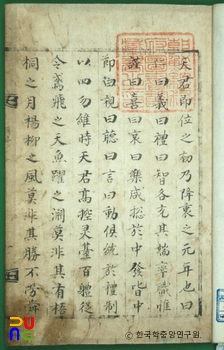 天君卽位之初乃降衷之元年也曰
仁曰義曰禮曰智各充其端率職惟
謹曰喜曰怒曰哀曰樂咸總於中發皆中
節曰視曰聽曰言曰動俱統於禮制
以四勿維時天君高拱靈臺百體從
令鳶飛之天魚躍之淵莫非其有梧
桐之月楊柳之風莫非其勝不勞舜
한국학중앙연구원